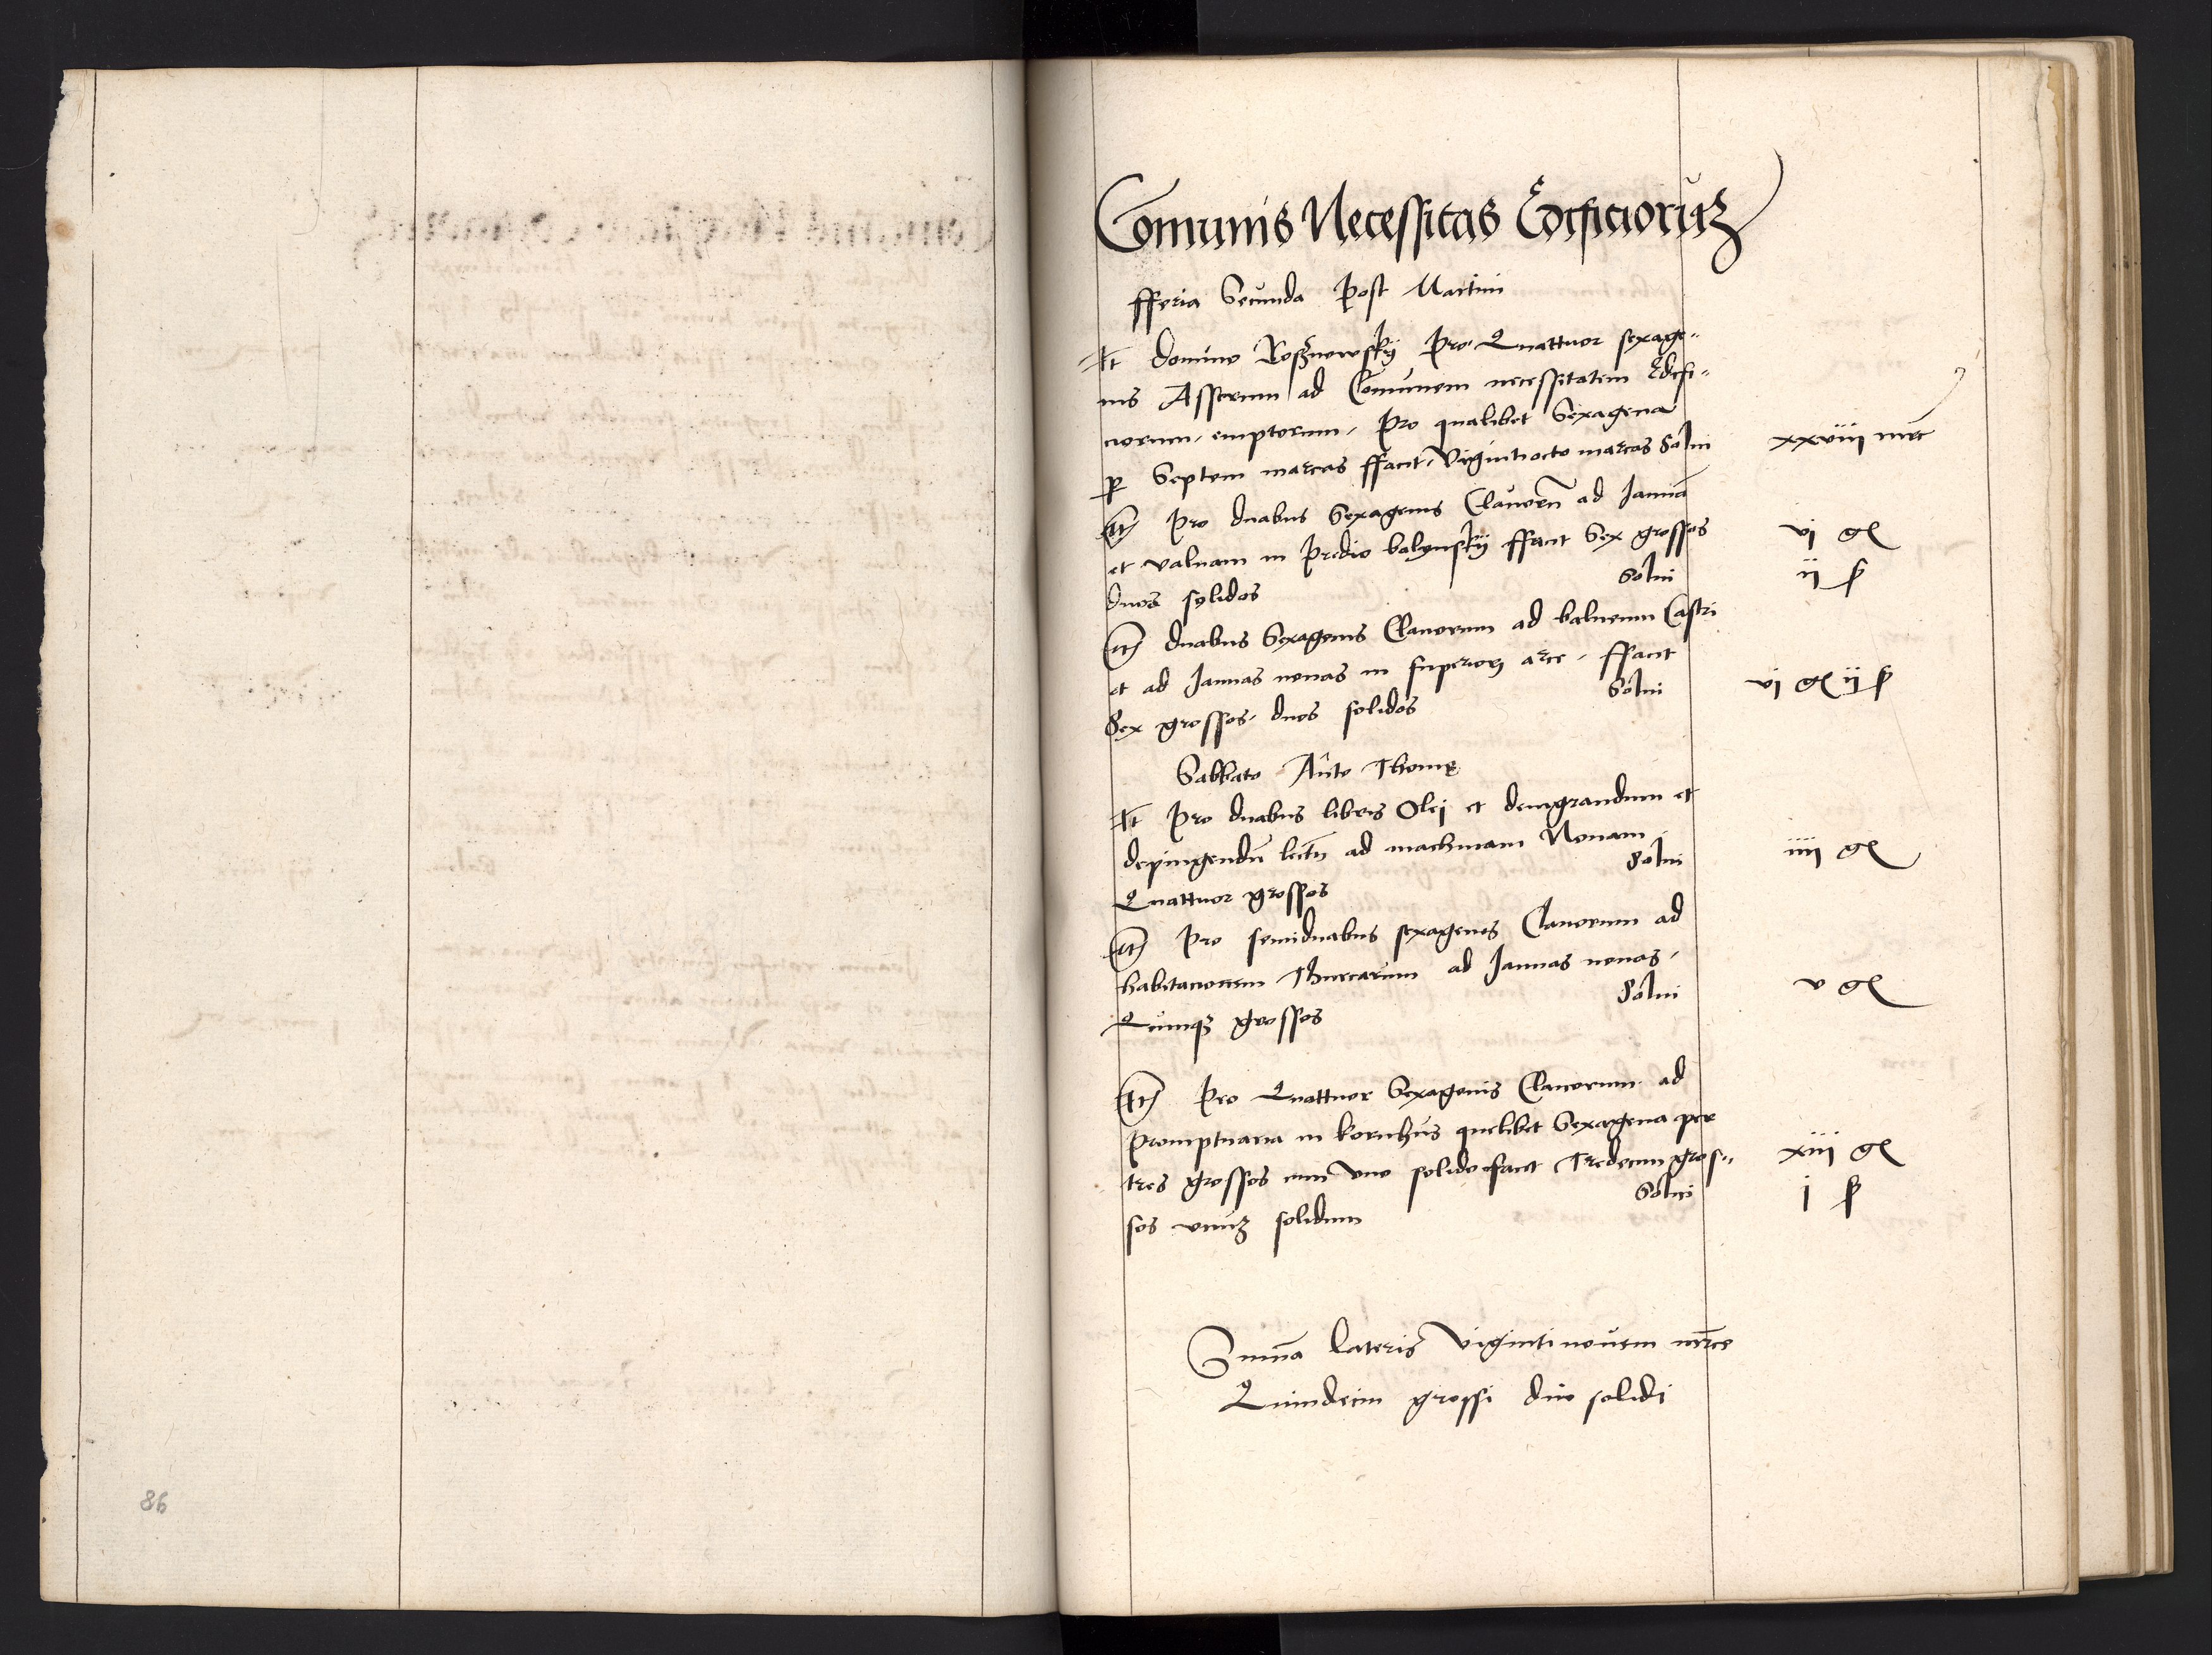 Comunis Necessitas Edificioruʒ
fferia Secunda Post Martini
It domino Roſznowskÿ Pro Quattuor sexage-
nis Asserum ad Comunem necessitatem Edifi-
ciorum, emptorum, Pro qualibet Sexagena
ꝑ Septem marcas ffacit, Vigintiocto marcas Solui xxviii mrc
It Pro duabus Sexagenis Clauorū ad Januā
et valuam in Predio balynskÿ ffacit Sex grossos vi gͬ
duos solidos Solui ii ſ
It duabus Sexagenis Clauorum ad balneum Castri
et ad Januas nouas in superiori arce, ffacit
Sex grossos, duos solidos Solui vi gͬ ii ſ
Sabbato Añte Thomę
It Pro duabus libris Olej et denigrandum et
depingendū lectū ad machinam Nouam
Quattuor grossos Solui iiii gͬ
It Pro semiduabus sexagenis Clauorum ad
habitacionem Thurcarum ad Januas nouas,
Quinqʒ grossos Solui v gͬ
It Pro Quattuor Sexagenis Clauorum ad
Promptuaria in kornhus quelibet Sexagena per
tres grossos cum vno solido facit Tredecim gros- xiii gͬ
sos vnuʒ solidum Solui i ſ
Summa lateris Vigintinouem mrce
Quindecim grossi duo solidi
86